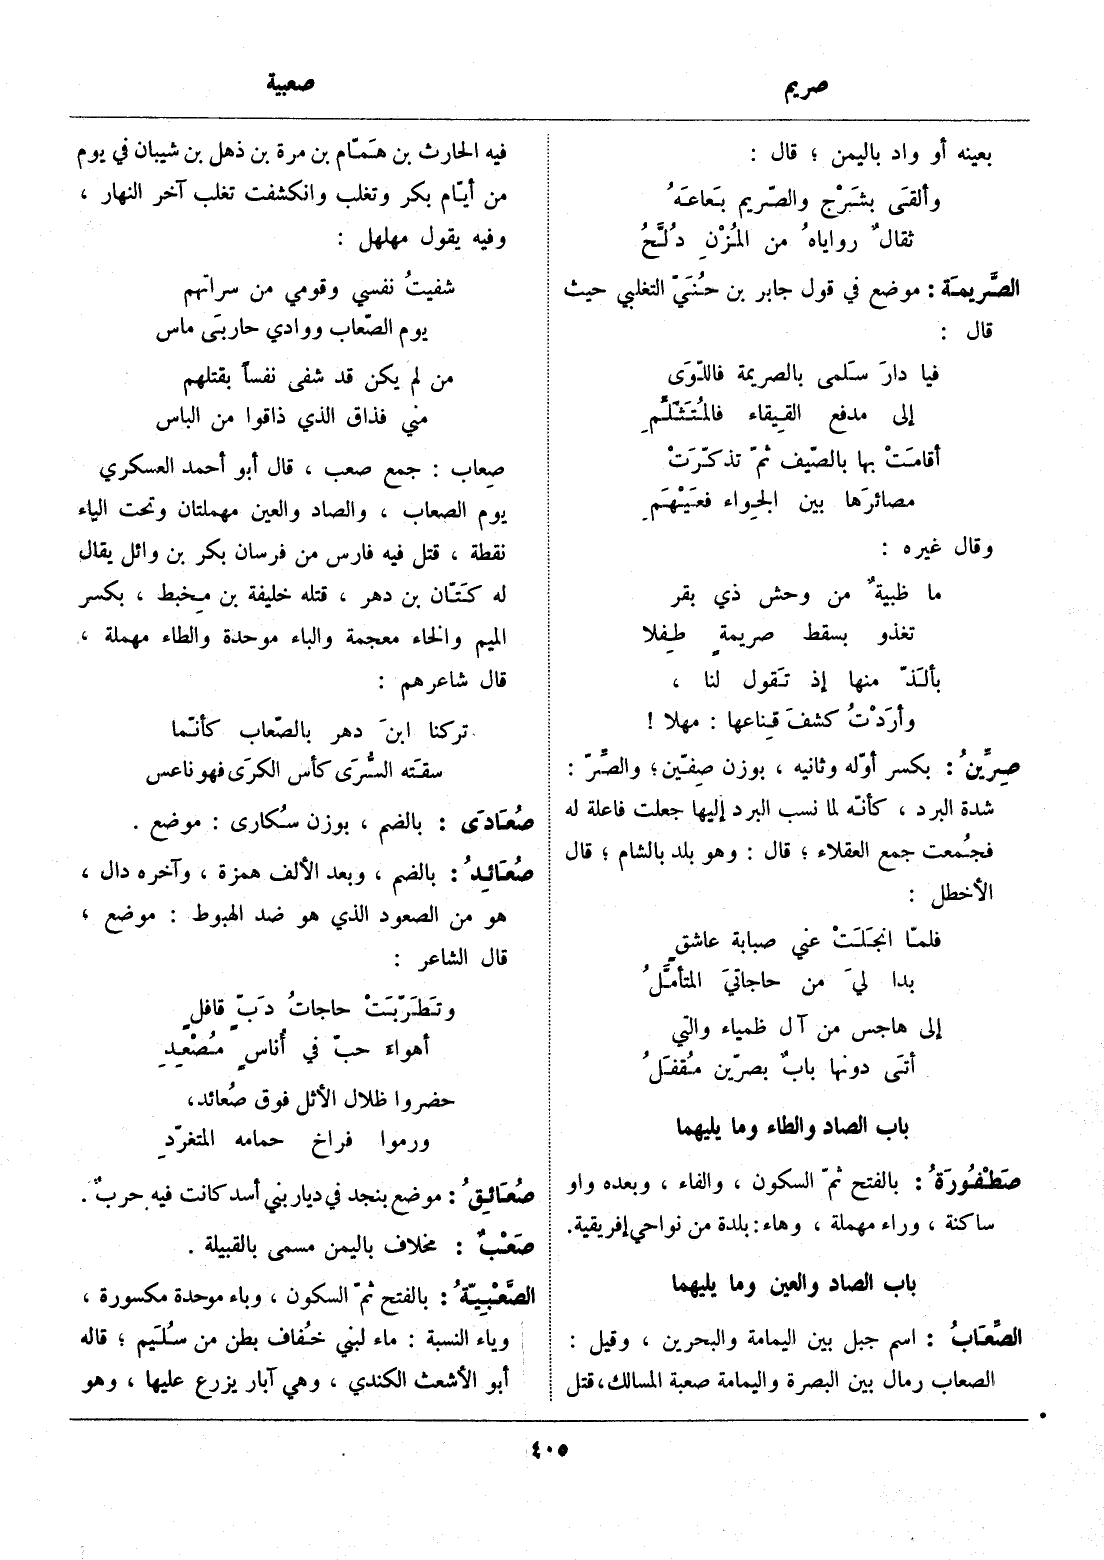 صريم
صعبية
بعينه أو واد باليمن ؛ قال :
وألقَى بشَرْج والصّريم بَعاعَهُ
ثقالٌ رواياهُ من المُزْنِ دُلَّحُ
الصَّريمَة : موضع في قول جابر بن حُنَيّ التغلبي حيث
قال :
فيا دارَ سَلمى بالصريمة فاللّوَى
إلى مدفع القِيقاء فالمُتَثَلَّمِ
أقامَتْ بها بالصّيف ثمّ تذكّرَتْ
مصائرَها بين الجِواء فعَيْهَمِ
وقال غيره :
ما ظبيةٌ من وحش ذي بقر
تغذو بسقط صريمةٍ طِفلا
بألَذّ منها إذ تَقول لنا ،
وأرَدْتُ كشفَ قِناعها : مهلا !
صِرِّينُ : بكسر أوّله وثانيه ، بوزن صِفّين ؛ والصِّرّ :
شدة البرد ، كأنّه لما نسب البرد إليها جعلت فاعلة له
فجُمعت جمع العقلاء ؛ قال : وهو بلد بالشام ؛ قال
الأخطل :
فلمّا انجَلَتْ عني صبابة عاشقٍ
بدا ليَ من حاجاتيَ المتأمَّلُ
إلى هاجس من آل ظمياء والتي
أتَى دونها بابٌ بصرّين مُقفَلُ
باب الصاد والطاء وما يليهما
صَطْفُورَةُ : بالفتح ثمّ السكون ، والفاء ، وبعده واو
ساكنة ، وراء مهملة ، وهاء : بلدة من نواحي إفريقية.
باب الصاد والعين وما يليهما
الصِّعَابُ : اسم جبل بين اليمامة والبحرين ، وقيل :
الصعاب رمال بين البصرة واليمامة صعبة المسالك، قتل
فيه الحارث بن همّام بن مرة بن ذهل بن شيبان في يوم
من أيّام بكر وتغلب وانكشفت تغلب آخر النهار ،
وفيه يقول مهلهل :
شفيتُ نفسي وقومي من سراتهم
يوم الصّعاب ووادي حاربَى ماس
من لم يكن قد شفى نفساً بقتلهم
مني فذاق الذي ذاقوا من الباس
صِعاب : جمع صعب ، قال أبو أحمد العسكري
يوم الصعاب ، والصاد والعين مهملتان وتحت الباء
نقطة ، قتل فيه فارس من فرسان بكر بن وائل يقال
له كَنّان بن دهر ، قتله خليفة بن مِخبط ، بكسر
الميم والخاء معجمة والباء موحدة والطاء مهملة ،
قال شاعرهم :
تركنا ابنَ دهر بالصّعاب كأنّما
سقَته السُّرَى كأس الكرَى فهو ناعس
صُعَادَى : بالضم ، بوزن سُكارى : موضع .
صُعَائِدُ : بالضم ، وبعد الألف همزة ، وآخره دال ،
هو من الصعود الذي هو ضد الهبوط : موضع ؛
قال الشاعر :
وتَطَرّبَتْ حاجاتُ دَبٍّ قافلٍ
أهواءَ حبّ في أُناسٍ مُصْعِدِ
حضروا ظلال الأثل فوق صُعائد،
ورموا فراخ حمامه المتغرّدِ
صُعَائِقُ : موضع بنجد في ديار بني أسد كانت فيه حربٌ .
صَعْبٌ : مخلاف باليمن مسمى بالقبيلة .
الصَّعْبِيّةُ : بالفتح ثمّ السكون ، وباء موحدة مكسورة ،
وياء النسبة : ماء لبني خُفاف بطن من سُلَيم ؛ قاله
أبو الأشعث الكندي ، وهي آبار يزرع عليها ، وهو
٤٠٥